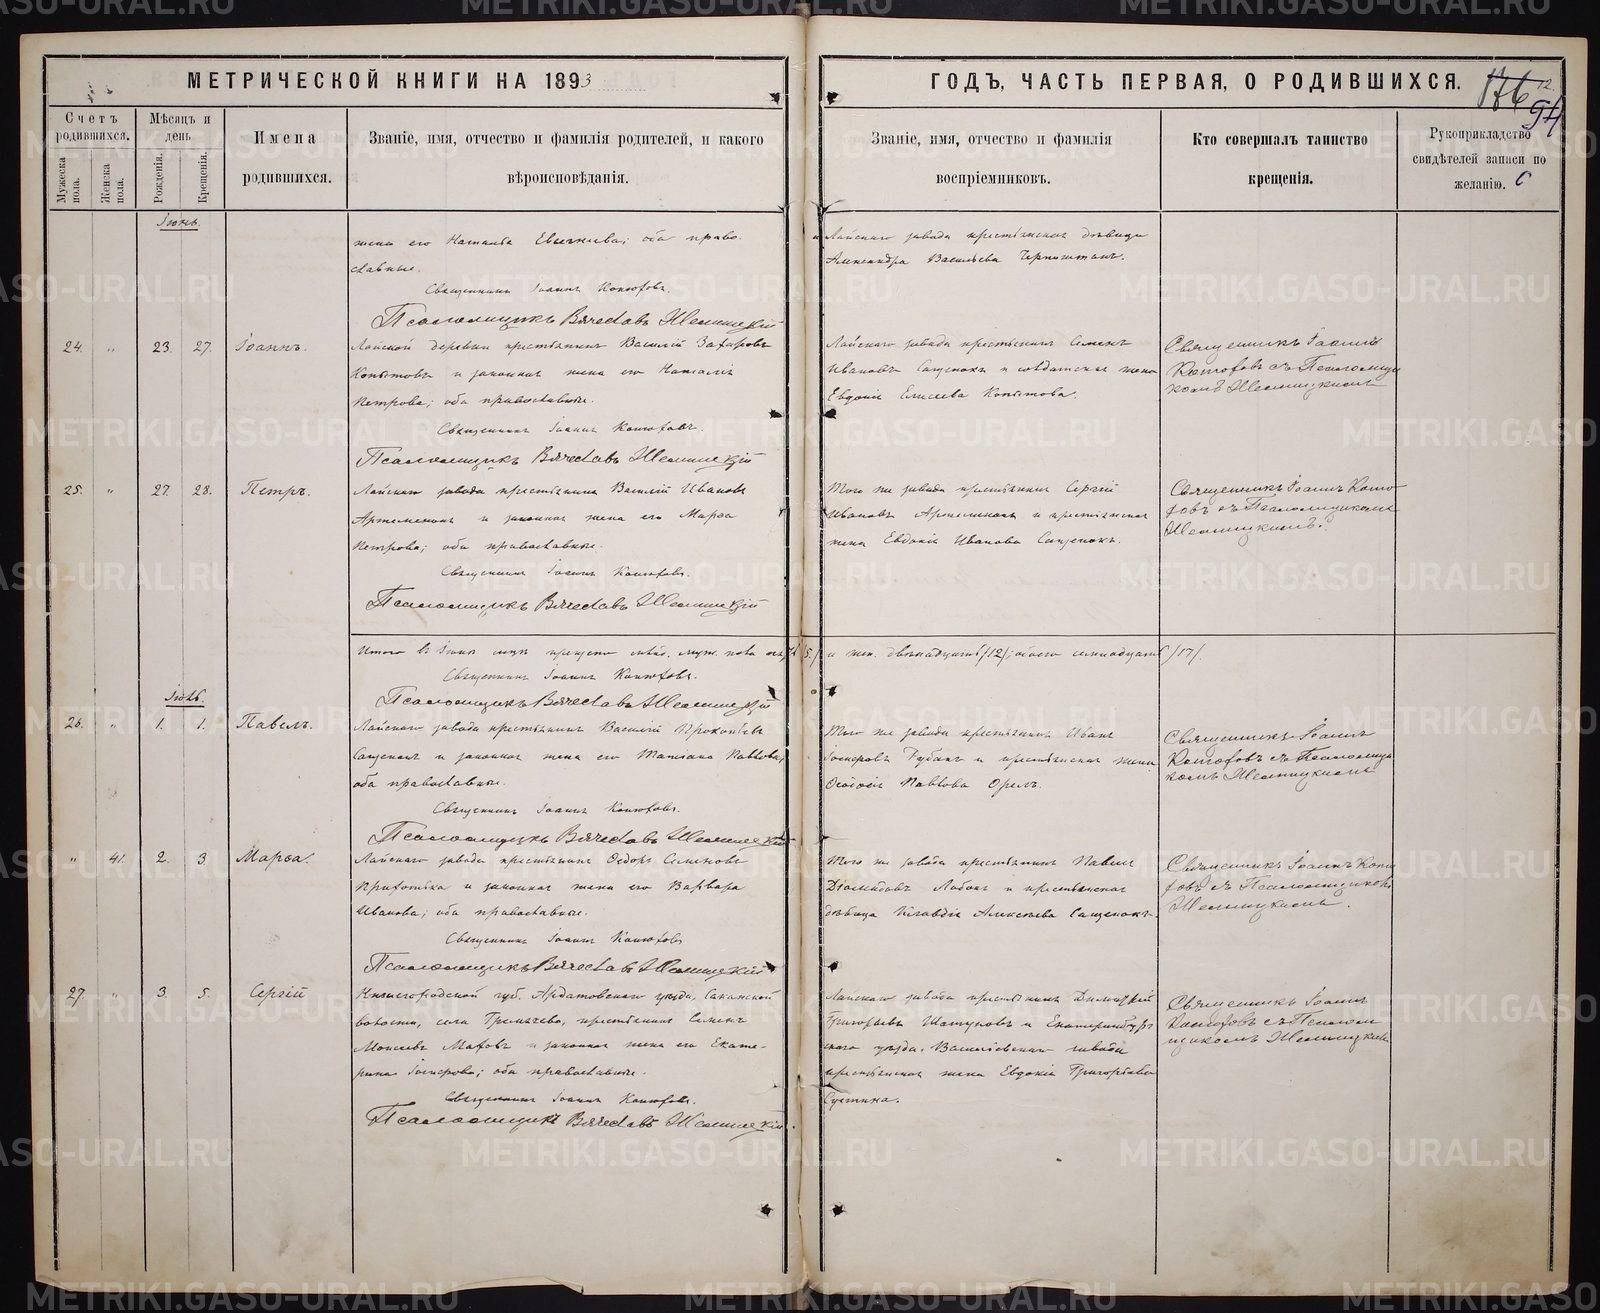 МЕТРИЧЕСКОЙ КНИГИ НА 1893
ГОДЪ, ЧАСТЬ ПЕРВАЯ, О РОДИВШИХСЯ.
176
94
Счетъ родившихся.
Мужеска пола.
Женска пола.
Мѣсяцъ и день
Рожденія.
Крещенія.
Имена
родившихся.
Званіе, имя, отчество и фамилія родителей, и какого
вѣроисповѣданія.
Званіе, имя, отчество и фамилія
воспріемниковъ.
Кто совершалъ таинство
крещенія.
Рукоприкладство
свидѣтелей записи по
желанію.
Іюнь.
жена его Наталья оба право-
славные.
Священникъ Іоаннъ Конюховъ.
Псаломщикъ Вячеславъ
Лайскаго завода крестьянская дѣвица
Александра Васильева
24. " 23. 27. Іоаннъ.
Лайской деревни крестьянинъ Василій Захаровъ
Копытовъ и законная жена его Наталія
Петрова; оба православные.
Священникъ Іоаннъ Конюховъ.
Псаломщикъ Вячеславъ
Лайскаго завода крестьянинъ Семенъ
Ивановъ Сащенокъ и солдатская жена
Евдокія Елисеева Копытова.
Священникъ Іоаннъ
Конюховъ съ Псаломщи
комъ
25. " 27. 28. Петръ.
Лайскаго завода крестьянинъ Василій Ивановъ
Артеменокъ и законная жена его Марѳа
Петрова; оба православные.
Священникъ Іоаннъ Конюховъ.
Псаломщикъ Вячеславъ
Того же завода крестьянинъ Сергій
Ивановъ Артеменокъ и крестьянская
жена Евдокія Иванова Сащенокъ.
Священникъ Іоаннъ Коню
ховъ съ Псаломщикомъ
Итого въ Іюнѣ муж. пола пять /5/ и жен. двѣнадцать /12/; обоего семнадцать /17/.
Священникъ Іоаннъ Конюховъ.
Псаломщикъ Вячеславъ
Іюль.
26. " 1. 1. Павелъ.
Лайскаго завода крестьянинъ Василій Прокопьевъ
Сащенокъ и законная жена его Татіана Павлова;
оба православные.
Священникъ Іоаннъ Конюховъ.
Псаломщикъ Вячеславъ
Того же завода крестьянинъ Иванъ
Іосифовъ Рубанъ и крестьянская жена
Ѳеодосія Павлова Орелъ.
Священникъ Іоаннъ
Конюховъ съ Псаломщи
комъ
" 41. 2. 3 Марѳа.
Лайскаго завода крестьянинъ Ѳедоръ Семеновъ
Приходька и законная жена его Варвара
Иванова; оба православные.
Священникъ Іоаннъ Конюховъ
Псаломщикъ Вячеславъ
Того же завода крестьянинъ Павелъ
Діомидовъ Лобокъ и крестьянская
дѣвица Клавдія Алексѣева Сащенокъ.
Священникъ Іоаннъ Коню
ховъ съ Псаломщикомъ
27. " 3. 5. Сергій
Нижегородской губ. Ардатовскаго уѣзда, Саконской
волости, села Гремячева, крестьянинъ Семенъ
Моисеевъ Маховъ и законная жена его Екате-
рина Іосифова; оба православные.
Священникъ Іоаннъ Конюховъ.
Псаломщикъ Вячеславъ
Лайскаго завода крестьянинъ Димитрій
Григорьевъ Шатуновъ и Екатеринбург-
скаго уѣзда, Васильевскаго завода
крестьянская жена Евдокія Григорьева
Сустина.
Священникъ Іоаннъ
Конюховъ съ Псалом
щикомъ
METRIKI.GASO-URAL.RU